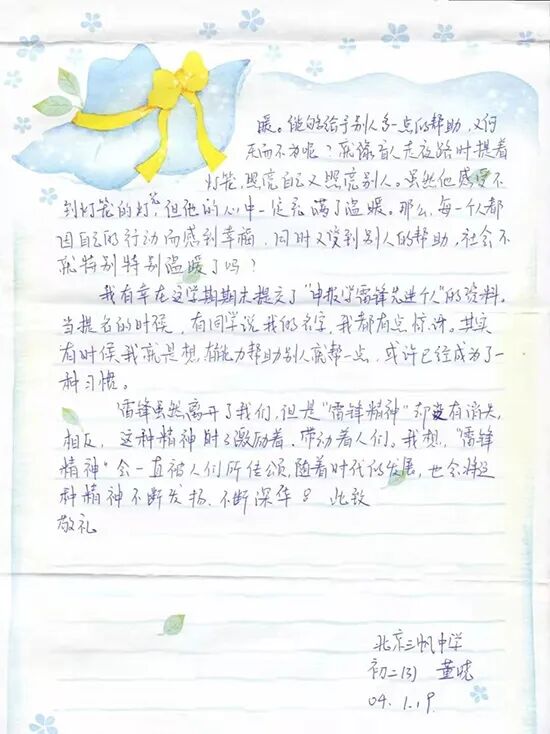 暖。能够给予别人多一点的帮助，又何
乐而不为呢？就像盲人走夜路时提着
灯笼，照亮自己又照亮别人。虽然他感受不
到灯笼的灯光，但他的心中一定充满了温暖。那么，每一个人都
因自己的行动而感到幸福，同时又受到别人的帮助，社会不
就特别特别温暖了吗？
我有幸在这学期期末提交了“申报学雷锋先进个人”的资料。
当提名的时候，有同学说我的名字，我都有点惊讶。其实
有时候，我就是想，有能力帮助别人就帮一点，或许已经成为了一
种习惯。
雷锋虽然离开了我们，但是“雷锋精神”却没有消失，
相反，这种精神时时激励着、带动着人们。我想，“雷锋
精神”会一直被人们所传颂，随着时代的发展，也会将这
种精神不断发扬、不断深华。 此致
敬礼
北京三帆中学
初二(3) 董
04.1.19.